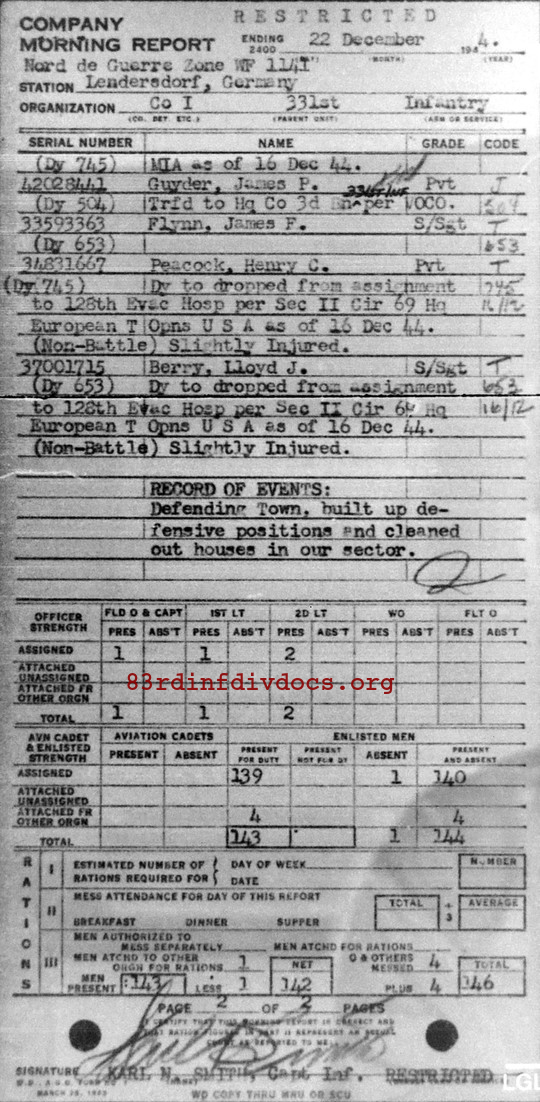 RESTRICTED
COMPANY
MORNING REPORT ENDING 2400 22 December 194 4.
(DAY) (MONTH) (YEAR)
Nord de Guerre Zone WF 1141
STATION Lendersdorf, Germany
ORGANIZATION Co I 331st Infantry
(CO. DET. ETC.) (PARENT UNIT) (ARM OR SERVICE)
SERIAL NUMBER NAME GRADE CODE
(Dy 745) MIA as of 16 Dec 44.
42028441 Guyder, James P. Pvt J
331ST INF
(Dy 504) Trfd to Hq Co 3d Bn^per VOCO. 504
33593363 Flynn, James F. S/Sgt T
(Dy 653) 653
34831667 Peacock, Henry C. Pvt T
(Dy 745) Dy to dropped from assignment 745
to 128th Evac Hosp per Sec II Cir 69 Hq 16/12
European T Opns U S A as of 16 Dec 44.
(Non-Battle) Slightly Injured.
37001715 Berry, Lloyd J. S/Sgt T
(Dy 653) Dy to dropped from assignment 653
to 128th Evac Hosp per Sec II Cir 69 Hq 16/12
European T Opns U S A as of 16 Dec 44.
(Non-Battle) Slightly Injured.
RECORD OF EVENTS:
Defending Town, built up de-
fensive positions and cleaned
out houses in our sector.
OFFICER STRENGTH FLD O & CAPT 1ST LT 2D LT WO FLT O
PRES ABS'T PRES ABS'T PRES ABS'T PRES ABS'T PRES ABS'T
ASSIGNED 1 1 2
ATTACHED UNASSIGNED
83rdinfdivdocs.org
ATTACHED FR OTHER ORGN
TOTAL 1 1 2
AVN CADET & ENLISTED STRENGTH AVIATION CADETS ENLISTED MEN
PRESENT ABSENT PRESENT FOR DUTY PRESENT NOT FOR DY ABSENT PRESENT AND ABSENT
ASSIGNED 139 1 140
ATTACHED UNASSIGNED
ATTACHED FR OTHER ORGN 4 4
TOTAL 143 1 144
RATIONS
I ESTIMATED NUMBER OF RATIONS REQUIRED FOR { DAY OF WEEK DATE NUMBER
II MESS ATTENDANCE FOR DAY OF THIS REPORT TOTAL ÷ 3 AVERAGE
BREAKFAST DINNER SUPPER
III MEN AUTHORIZED TO MESS SEPARATELY MEN ATCHD FOR RATIONS
MEN ATCHD TO OTHER ORGN FOR RATIONS 1 NET O & OTHERS MESSED 4 TOTAL
MEN PRESENT 143 LESS 1 142 PLUS 4 146
PAGE 2 OF 2 PAGES
I CERTIFY THAT THIS MORNING REPORT IS CORRECT AND
THAT RATION FIGURES IN PART III REPRESENT AN ACTUAL
COUNT AS REPORTED TO ME
SIGNATURE KARL N. SMITH, Capt Inf. RESTRICTED
W.D., A.G.O. FORM NO 1
MARCH 25, 1943
WD COPY THRU MRU OR SCU
LGL